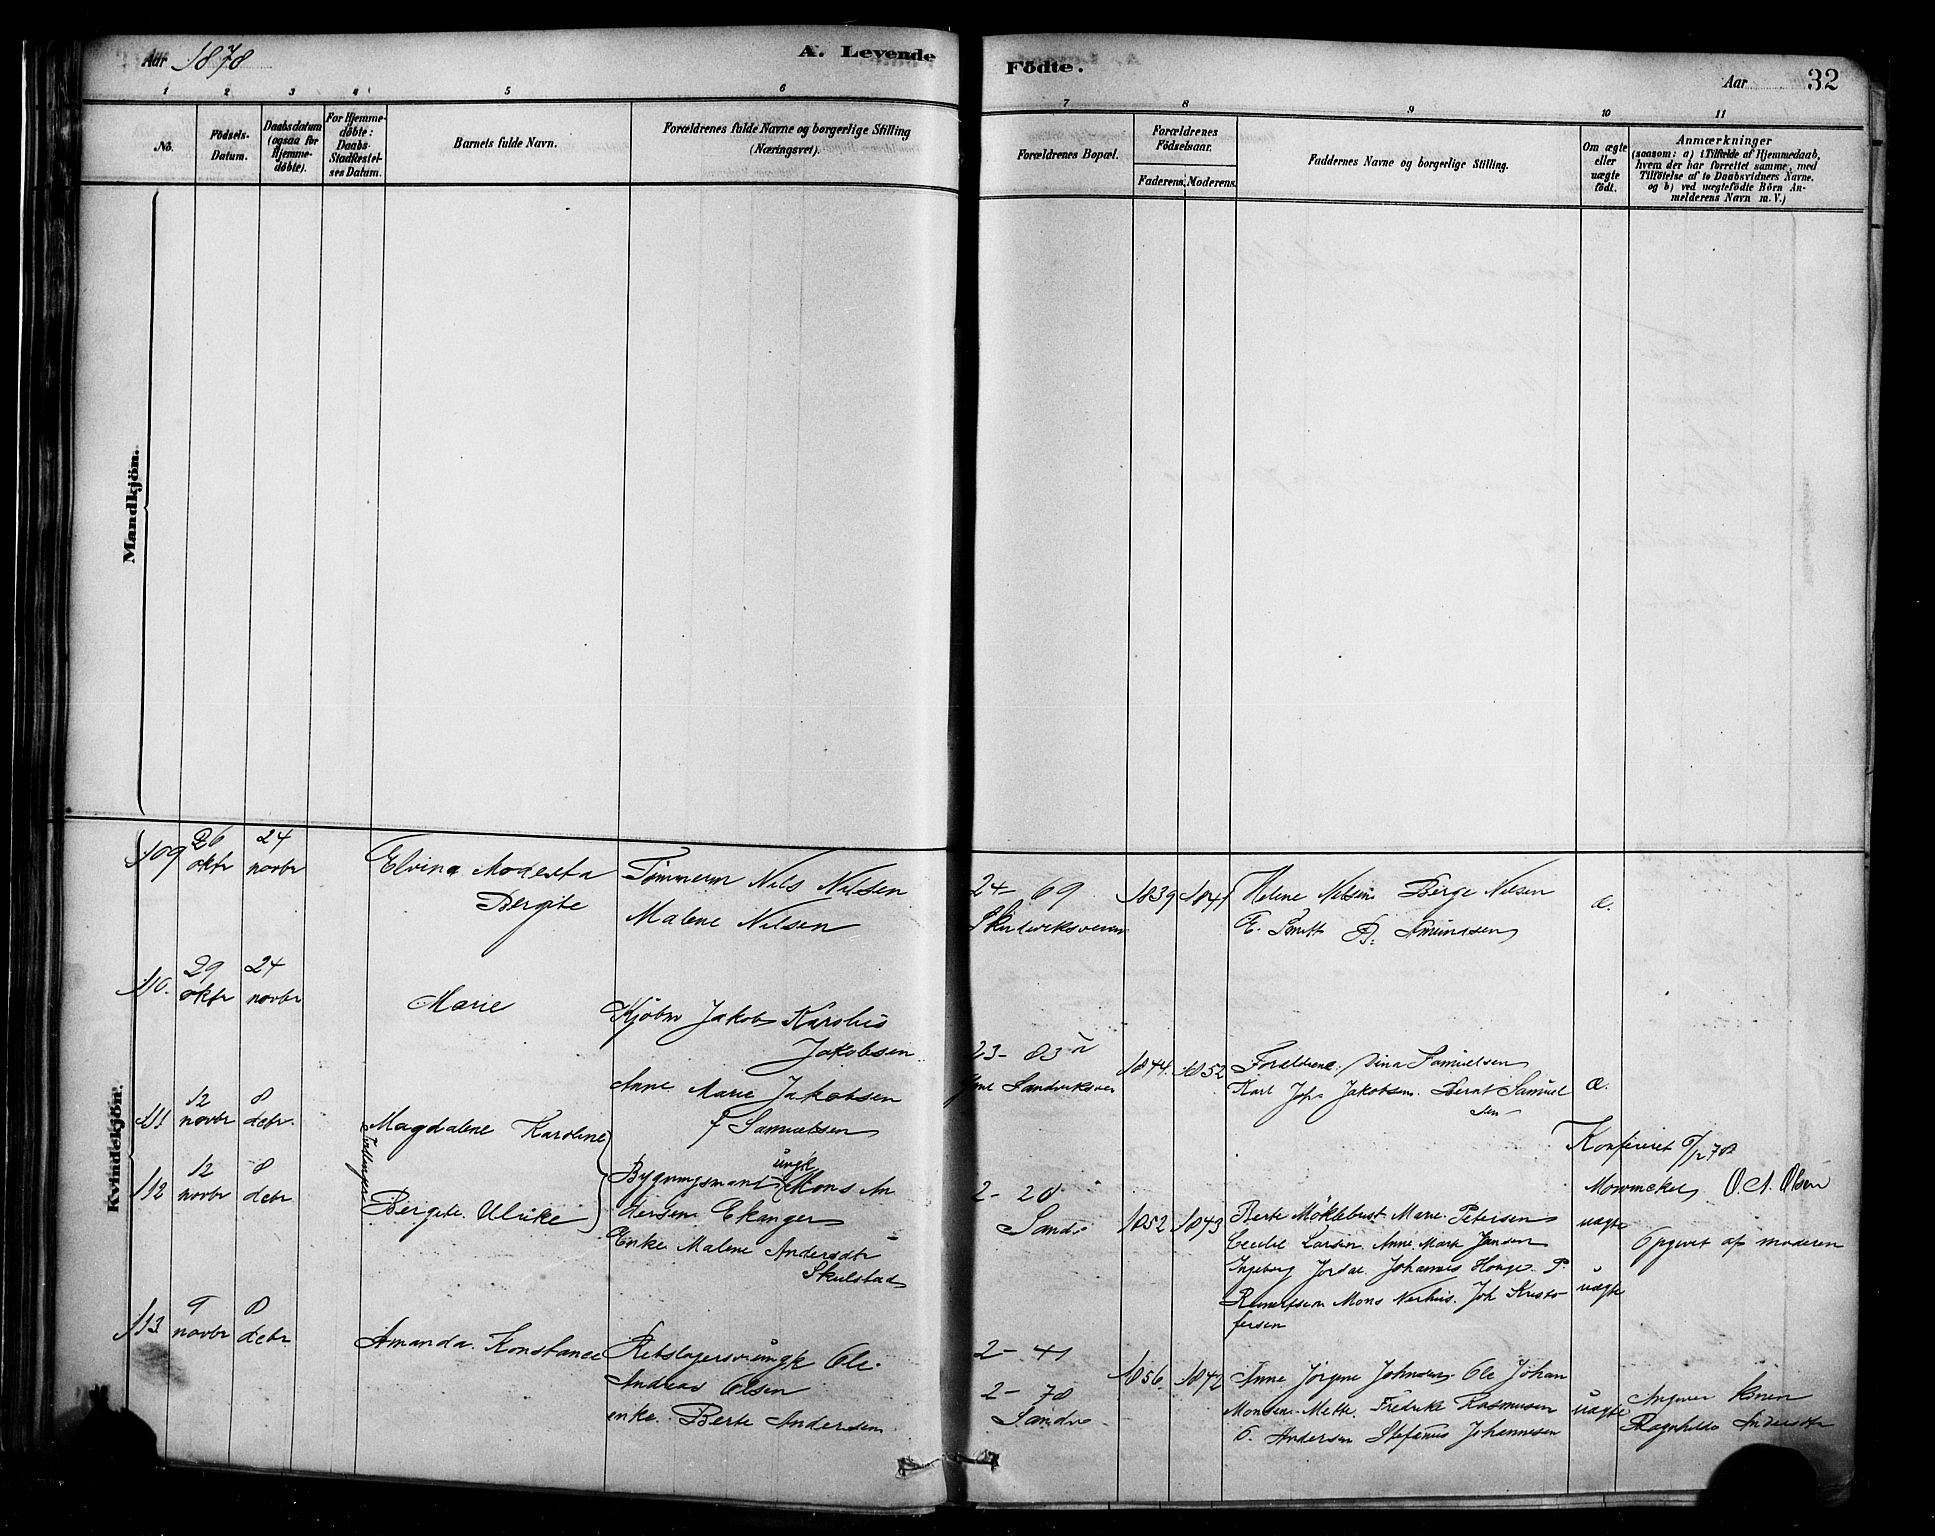 Aar 1878
A. Levende
Födte.
Aar
32
1 2 3 4 5 6
7 8 9 10 11
No.
Födsels-
Datum.
Daabsdatum
(ogsaa for
Hjemme-
döbte).
For Hjemme-
döbte:
Daabs-
Stadfæstel-
ses Datum.
Barnets fulde Navn.
Forældrenes fulde Navne og borgerlige Stilling
(Næringsvei).
Forældrenes Bopæl.
Forældrenes
Födselsaar.
Faderens. Moderens.
Faddernes Navne og borgerlige Stilling.
Om ægte
eller
uægte
födt.
Anmærkninger
(saasom: a) i Tilfælde af Hjemmedaab,
hvem der har forrettet samme, med
Tilföielse af to Daabsvidners Navne,
og b) ved uægtefödte Börn An-
melderens Navn m. V.)
Mandkjön.
Kvindekjön.
109 26 oktr 24 novbr
Elvina Modesta
Bergite
Tömmerm Nils Nilsen
Malene Nilsen
24 - 69
1839 1841
Helene Nilsen Børge Nilsen
E. Smitt B. Amundsen
æ.
110. 29 oktr 24 novbr
Marie
Kjøbm Jakob Karolius
Jakobsen
Anne Marie Jakobsen
f Samuelsen
23 - 83
Sandviksvei
1844. 1852
Forældrene. Dina Samuelsen
Karl Joh. Jakobsen. Bernt Samuel
sen
æ.
111 12 novbr 8 debr.
Magdalene Karoline
112 12 novbr 8 debr
Tvillinger
Bergite Ulrike
Bygningsmand ungk Mons An
dersen Ekanger
Enke Malene Andersdtr
Skulstad
2 - 20
Sandv
1852 1843
Berte Möklebust Marie Petersen
Cecilie Larsen Anne Marie Jansen
Ingeborg Jordal Johannes Hauge P.
Reinertsen Mons Nerhus. Joh Kristo
fersen
uægte
uægte
O. A. Olsen
Opgivet af moderen
113 9 novbr 8 debr
Amanda Konstance
Rebslagersv. ungk Ole
Andreas Olsen
enke Berte Andersen
2 - 41
2 - 78
Sandv
1856. 1842
Anne Jörgine Johnsen Ole Johan
Monsen Mette Fredrike Rasmusen
O. Andersen Stefanus Johannesen
uægte
Angiver konen
Ragnhilds Andersdtr